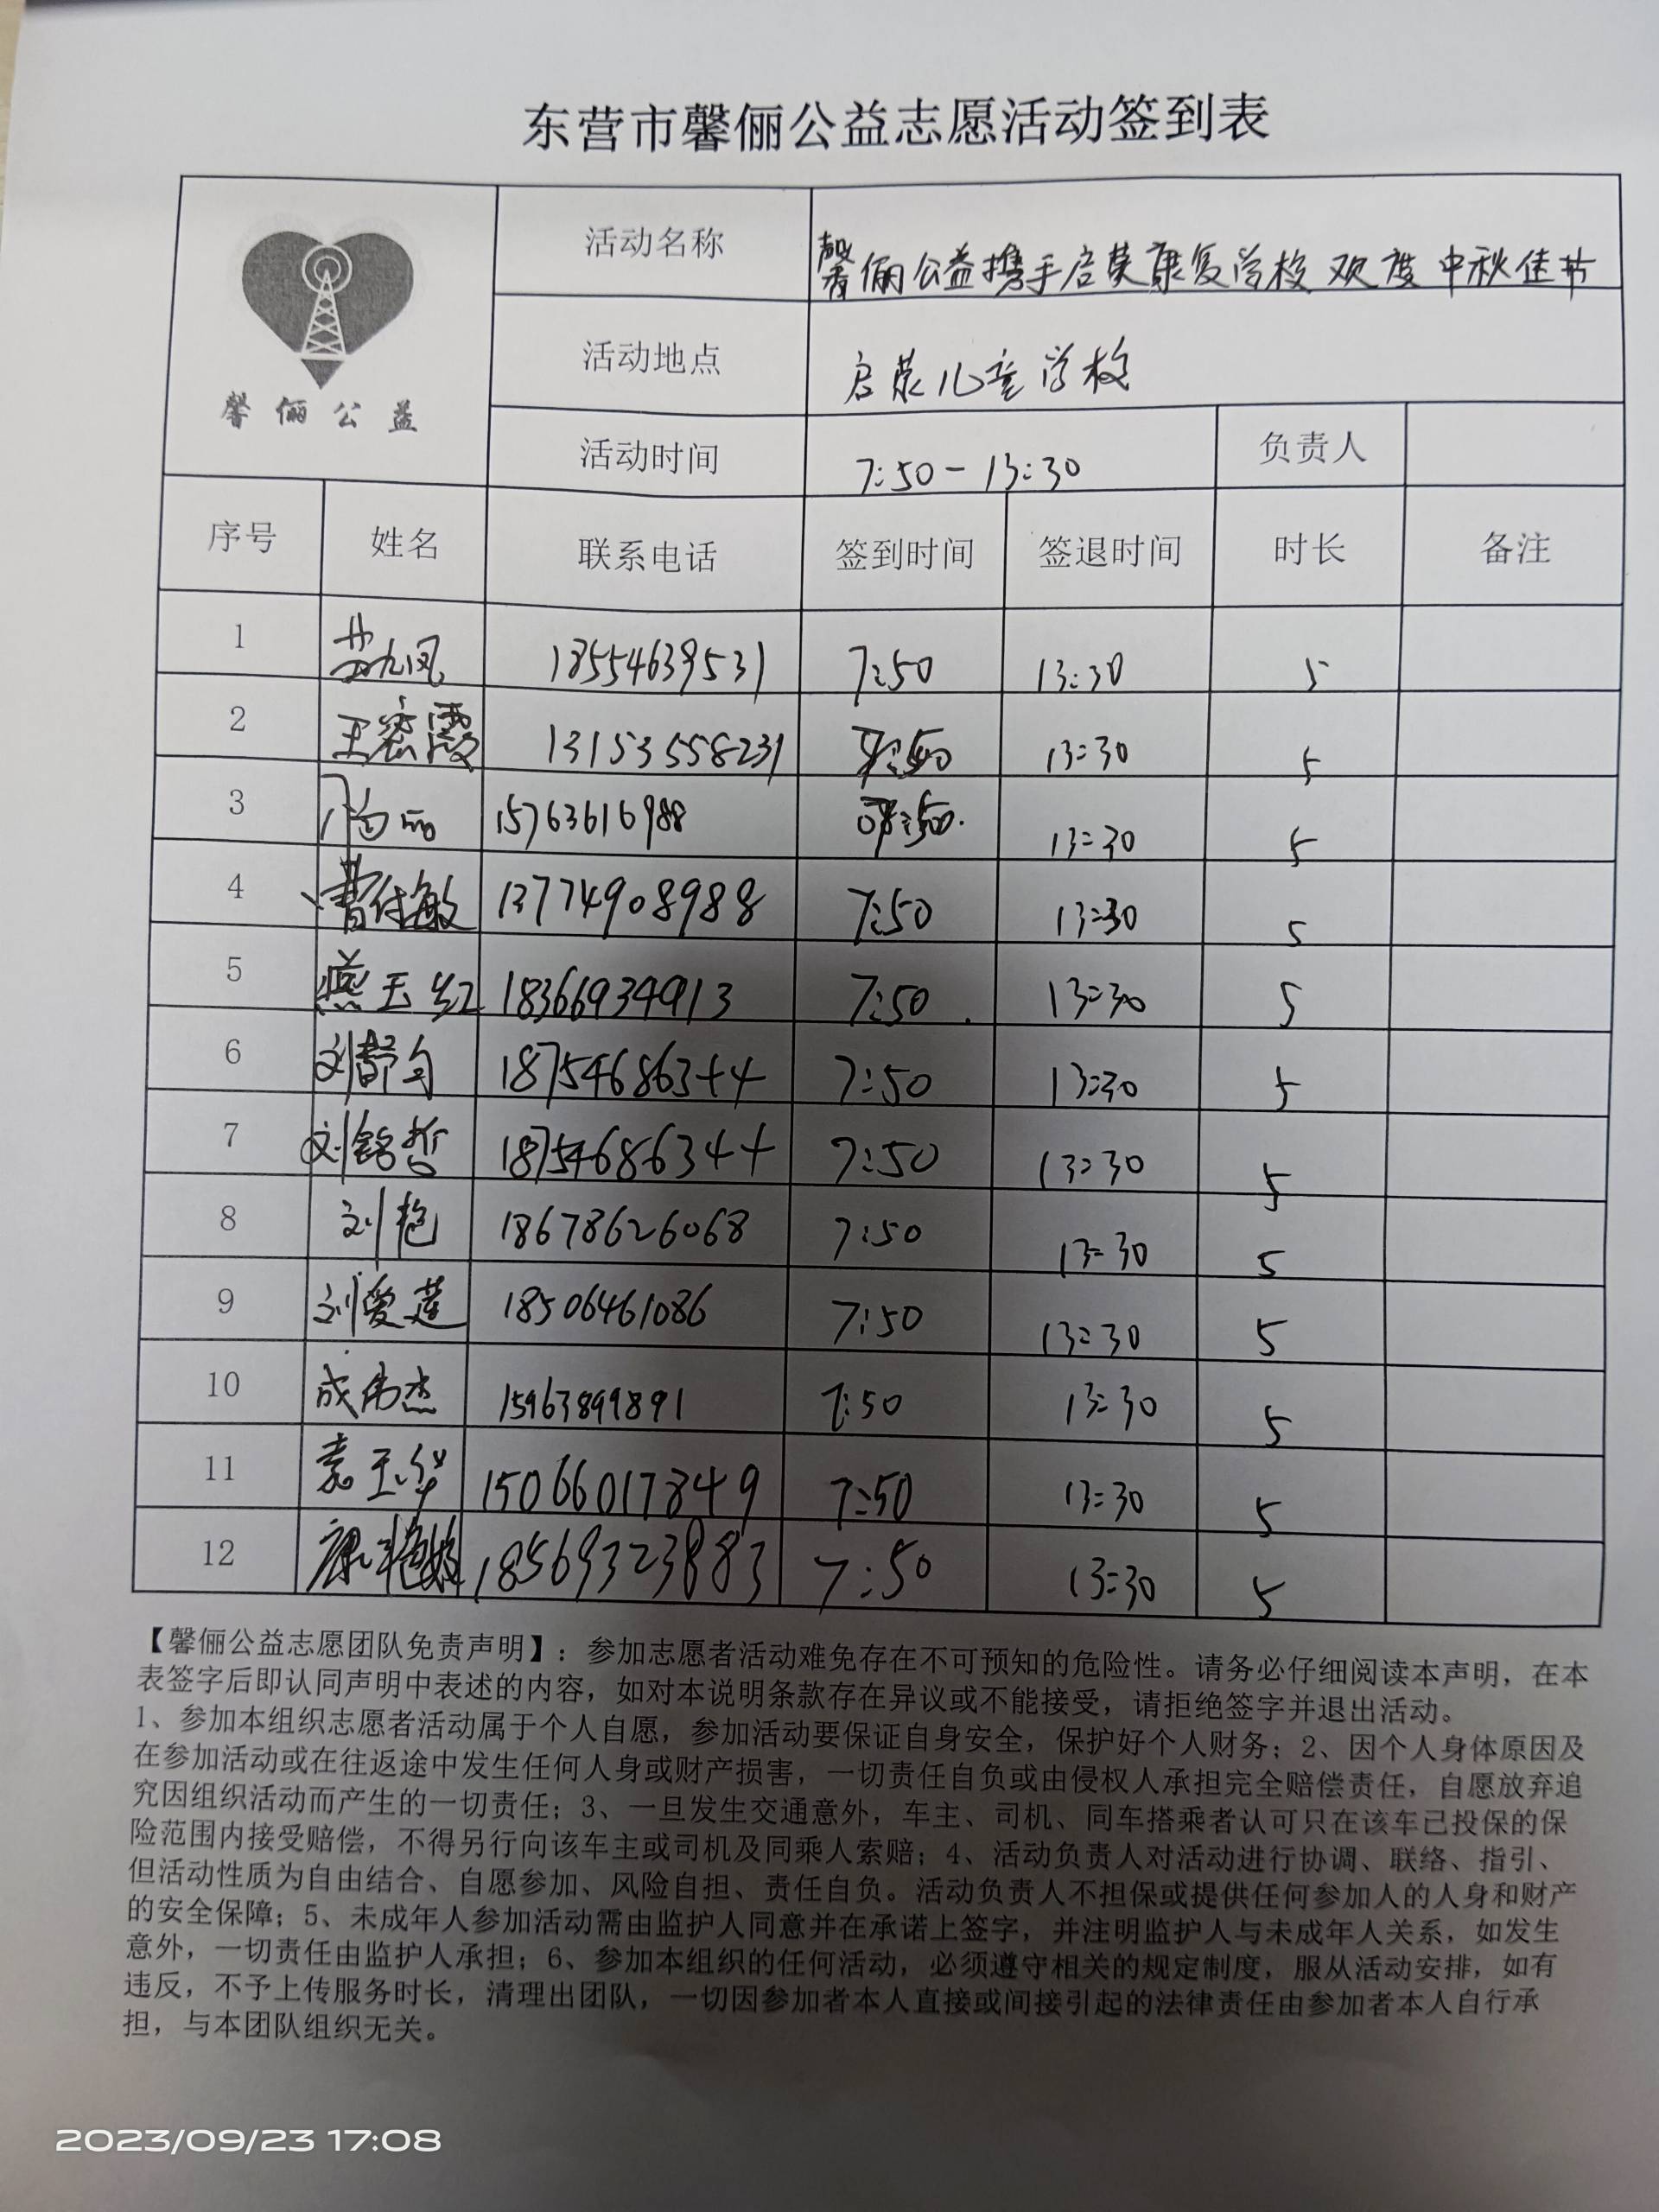 东营市馨俪公益志愿活动签到表
馨俪公益
活动名称 馨俪公益携手启荣康复学校欢度中秋佳节
活动地点 启荣儿童学校
活动时间 7:50-13:30 负责人
序号 姓名 联系电话 签到时间 签退时间 时长 备注
1 18554639531 7:50 13:30 5
2 王密霞 13153558231 13:30 5
3 15763616988 13:30 5
4 曹付敏 13774908988 7:50 13:30 5
5 燕玉红 18366934913 7:50 13:30 5
6 18754686344 7:50 13:30 5
7 刘铭哲 18754686344 7:50 13:30 5
8 刘艳 18678626068 7:50 13:30 5
9 刘爱莲 18506461086 7:50 13:30 5
10 成伟杰 15963899891 7:50 13:30 5
11 袁玉华 15066017849 7:50 13:30 5
12 18569323883 7:50 13:30 5
【馨俪公益志愿团队免责声明】：参加志愿者活动难免存在不可预知的危险性。请务必仔细阅读本声明，在本
表签字后即认同声明中表述的内容，如对本说明条款存在异议或不能接受，请拒绝签字并退出活动。
1、参加本组织志愿者活动属于个人自愿，参加活动要保证自身安全，保护好个人财务；2、因个人身体原因及
在参加活动或在往返途中发生任何人身或财产损害，一切责任自负或由侵权人承担完全赔偿责任，自愿放弃追
究因组织活动而产生的一切责任；3、一旦发生交通意外，车主、司机、同车搭乘者认可只在该车已投保的保
险范围内接受赔偿，不得另行向该车主或司机及同乘人索赔；4、活动负责人对活动进行协调、联络、指引、
但活动性质为自由结合、自愿参加、风险自担、责任自负。活动负责人不担保或提供任何参加人的人身和财产
的安全保障；5、未成年人参加活动需由监护人同意并在承诺上签字，并注明监护人与未成年人关系，如发生
意外，一切责任由监护人承担；6、参加本组织的任何活动，必须遵守相关的规定制度，服从活动安排，如有
违反，不予上传服务时长，清理出团队，一切因参加者本人直接或间接引起的法律责任由参加者本人自行承
担，与本团队组织无关。
2023/09/23 17:08